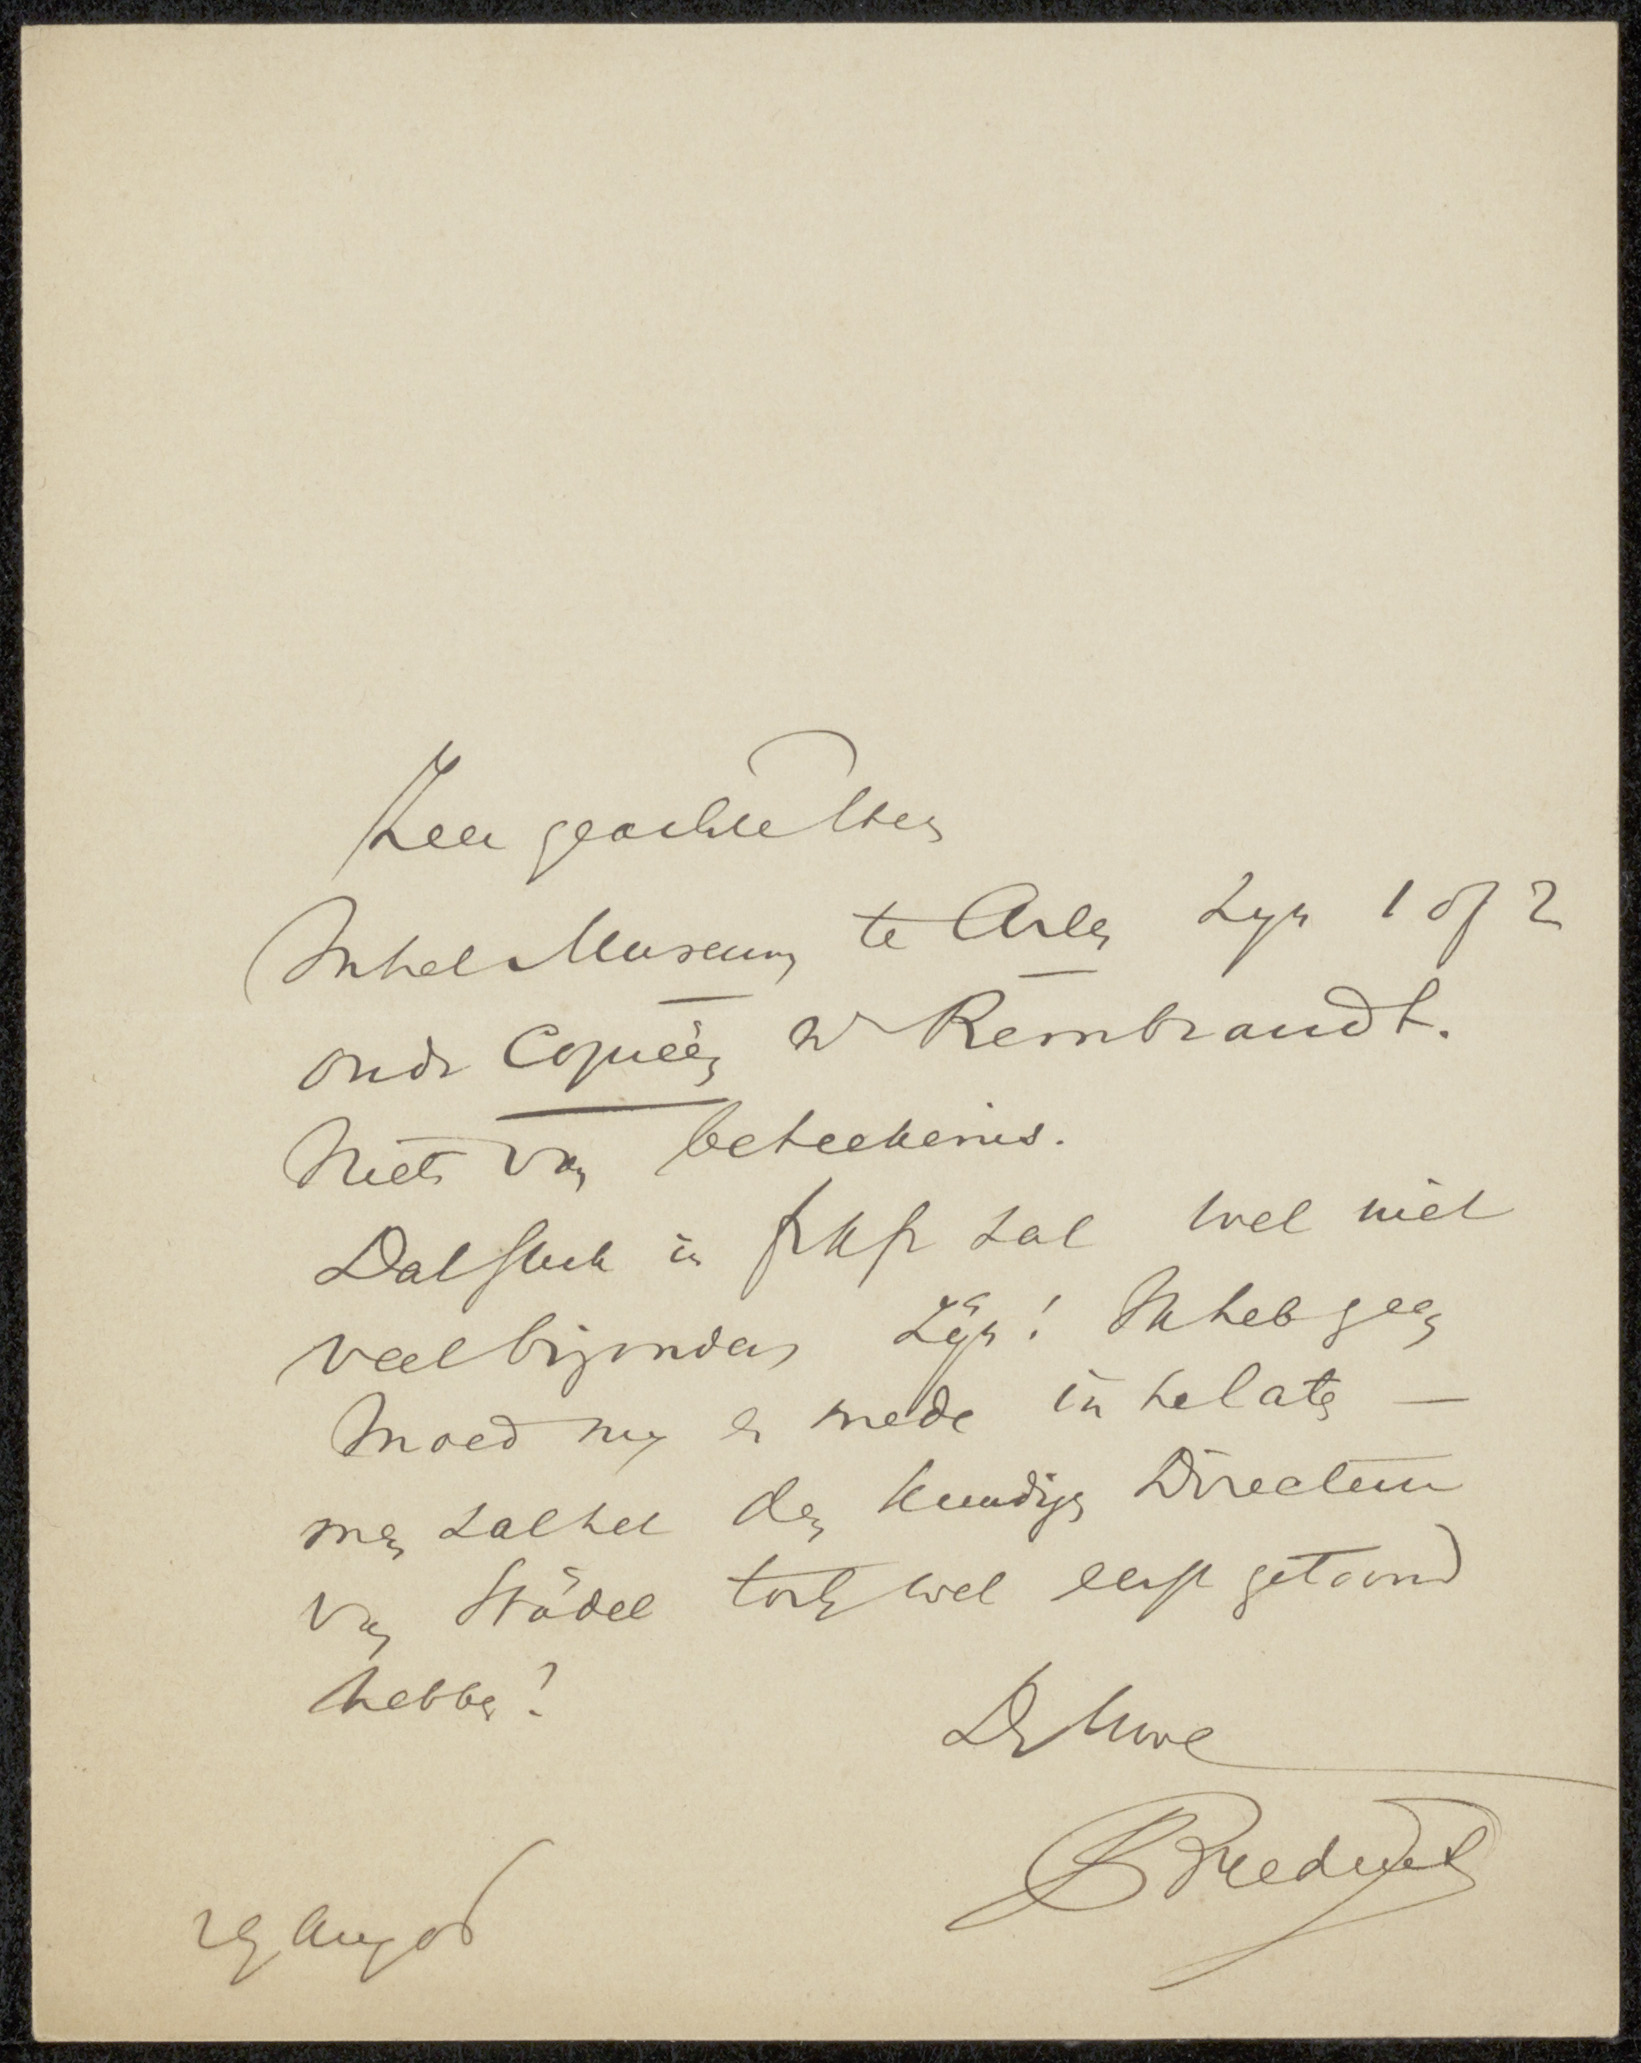 Zeer geachte Heer
In het Museum te Arles zijn 1 of 2
oude Copieën n/ Rembrandt.
Niets van beteekenis.
Dat stuk in Frkft zal wel niet
veel bijzonders zijn! Ik heb geen
moed mij er mede in te laten —
men zal het den kundigen Directeur
van Städel toch wel eerst getoond
hebben?
Uwe
A Bredius
29 Aug 06